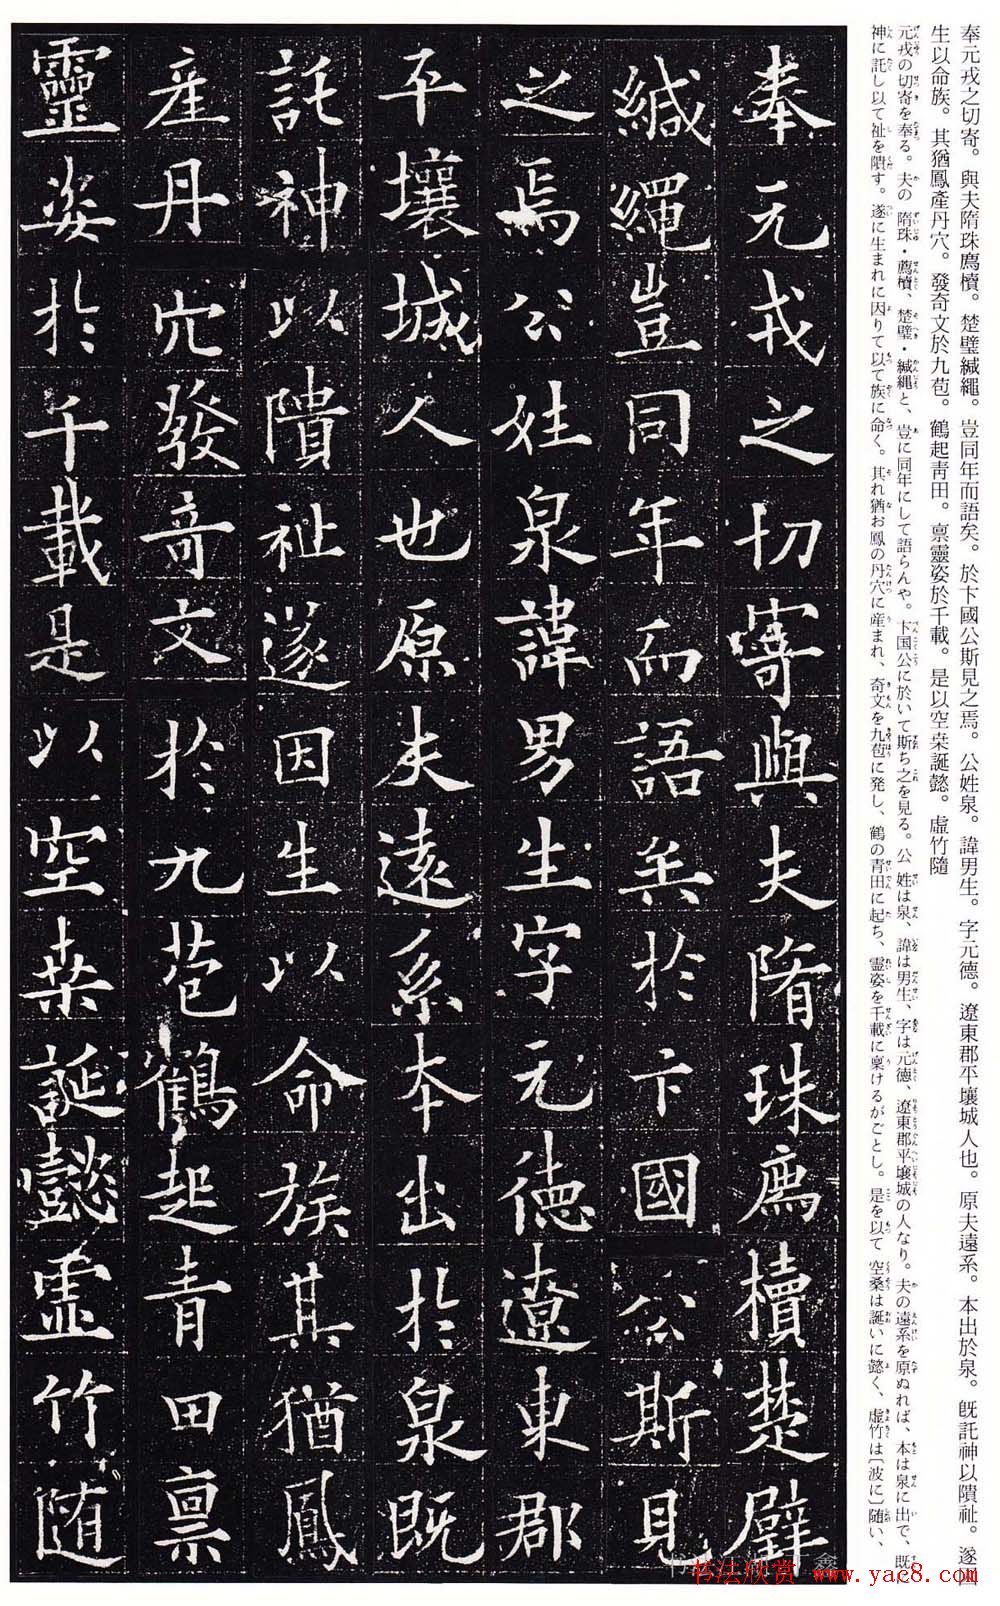 奉元戎之切寄。與夫隋珠廌櫝。楚璧緘繩。豈同年而語矣。於卞國公斯見之焉。公姓泉。諱男生。字元德。遼東郡平壤城人也。原夫遠系。本出於泉。既託神以隤祉。遂因
生以命族。其猶鳳產丹穴。發奇文於九苞。鶴起青田。禀靈姿於千載。是以空桒誕懿。虛竹隨
元戎の切寄を奉る。夫の隋珠・薦櫝、楚璧・緘繩と、豈に同年にして語らんや。卞国公に於いて斯ち之を見る。公姓は泉、諱は男生、字は元德、遼東郡平壤城の人なり。夫の遠系を原ぬれば、本は泉に出で、既に
神に託し以て祉を隤す。遂に生まれに因りて以て族に命く。其れ猶お鳳の丹穴に産まれ、奇文を九苞に発し、鶴の青田に起ち、霊姿を千載に稟けるがごとし。是を以て空桑は誕いに懿く、虚竹は〔波に〕随い、
奉元戎之切寄與夫隋珠廌櫝楚璧
緘繩豈同年而語矣於卞國公斯見
之焉公姓泉諱男生字元德遼東郡
平壤城人也原夫遠系本出於泉既
託神以隤祉遂因生以命族其猶鳳
產丹穴發奇文於九苞鶴起青田禀
靈姿於千載是以空桒誕懿虛竹随
书法欣赏 www.yac8.com